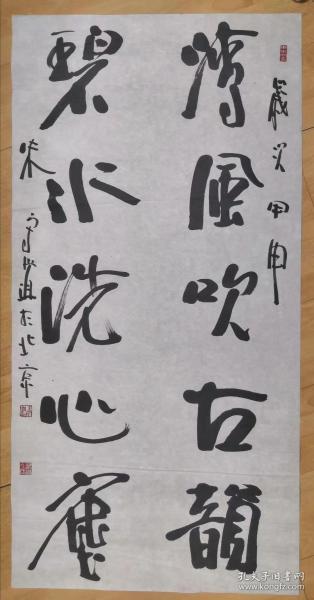 歲次甲申
清風吹古韻
碧水洗心塵
朱守道於北京
孔夫子旧书网